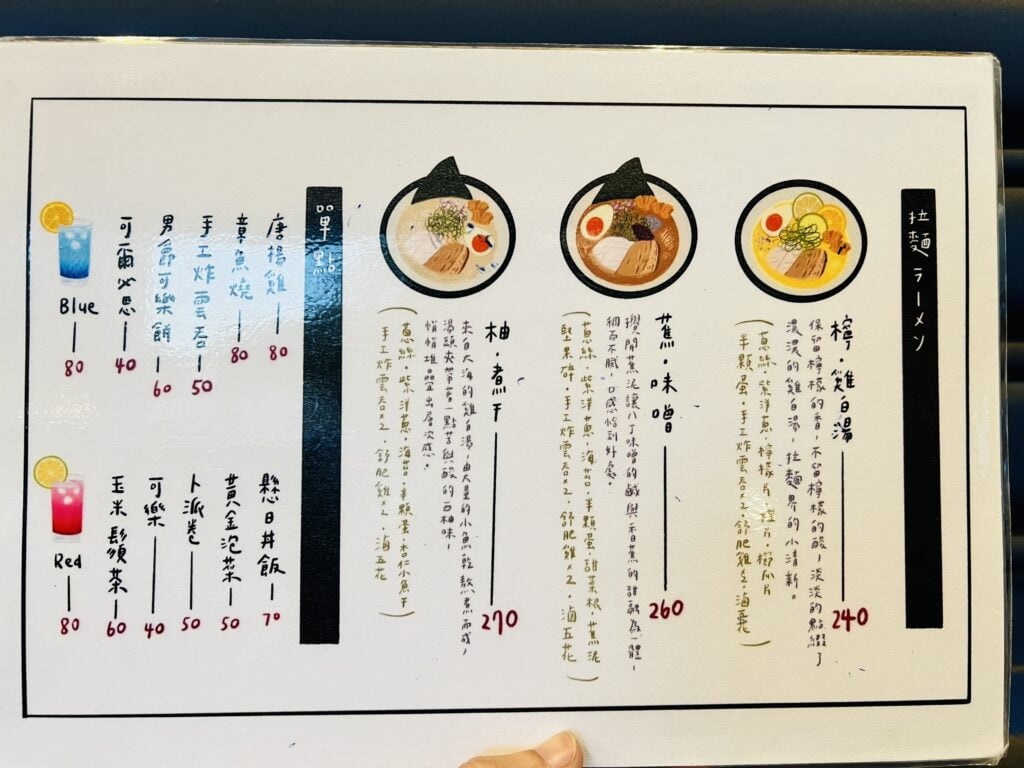 拉麵ラーメン
檸・雞白湯 240
保留檸檬的香，不留檸檬的酸，淡淡的點綴了
濃濃的雞白湯，拉麵界的小清新。
（蔥絲・紫洋蔥・檸檬片・橙片・櫛瓜片
半顆蛋・手工炸雲吞×2・舒肥雞×2・滷五花）
蕉・味噌 260
攪開蕉泥讓八丁味噌的鹹與香蕉的甜融為一體，
稠而不膩，口感恰到好處。
（蔥絲・紫洋蔥・海苔・半顆蛋・甜菜根・蕉泥
堅果碎・手工炸雲吞×2・舒肥雞×2・滷五花）
柚・煮干 270
來自大海的雞白湯，由大量的小魚乾熬煮而成，
湯頭夾帶著一點苦與酸的西柚味，
悄悄堆疊出層次感。
（蔥絲・紫洋蔥・海苔・半顆蛋・杏仁小魚干
手工炸雲吞×2・舒肥雞×2・滷五花）
單點
唐揚雞 80
章魚燒 80
手工炸雲吞 50
男爵可樂餅 60
可爾必思 40
Blue 80
懸日丼飯 70
黃金泡菜 50
卜派卷 50
可樂 40
玉米鬚茶 60
Red 80